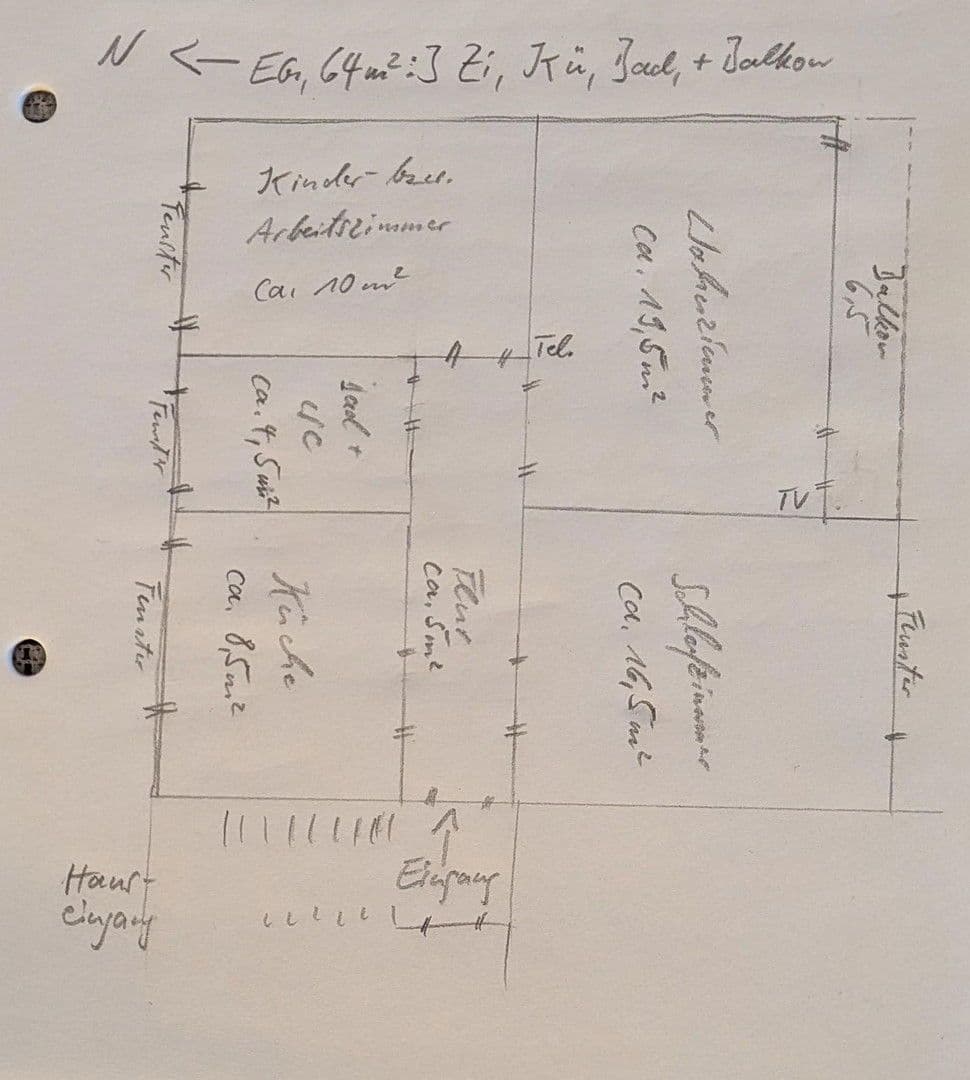 N ← EG, 64m²: 3 Zi, Kü, Bad, + Balkon
Kinder- bzw.
Arbeitszimmer
ca. 10m²
Fenster
Wohnzimmer
ca. 19,5m²
Balkon
6,5
Tel.
Bad +
WC
ca. 4,5m²
Fenster
TV
Küche
ca. 8,5m²
Fenster
Flur
ca. 5m²
Schlafzimmer
ca. 16,5m²
Fenster
Eingang
Haus-
eingang